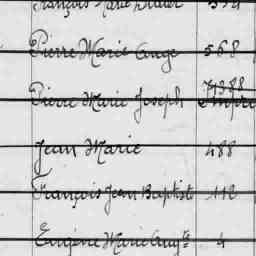 François Marie
Pierre Marie Ange 568
Pierre Marie Joseph 71388
Jean Marie 488
François Jean Baptiste 112
Eugène Marie Aug.te 4